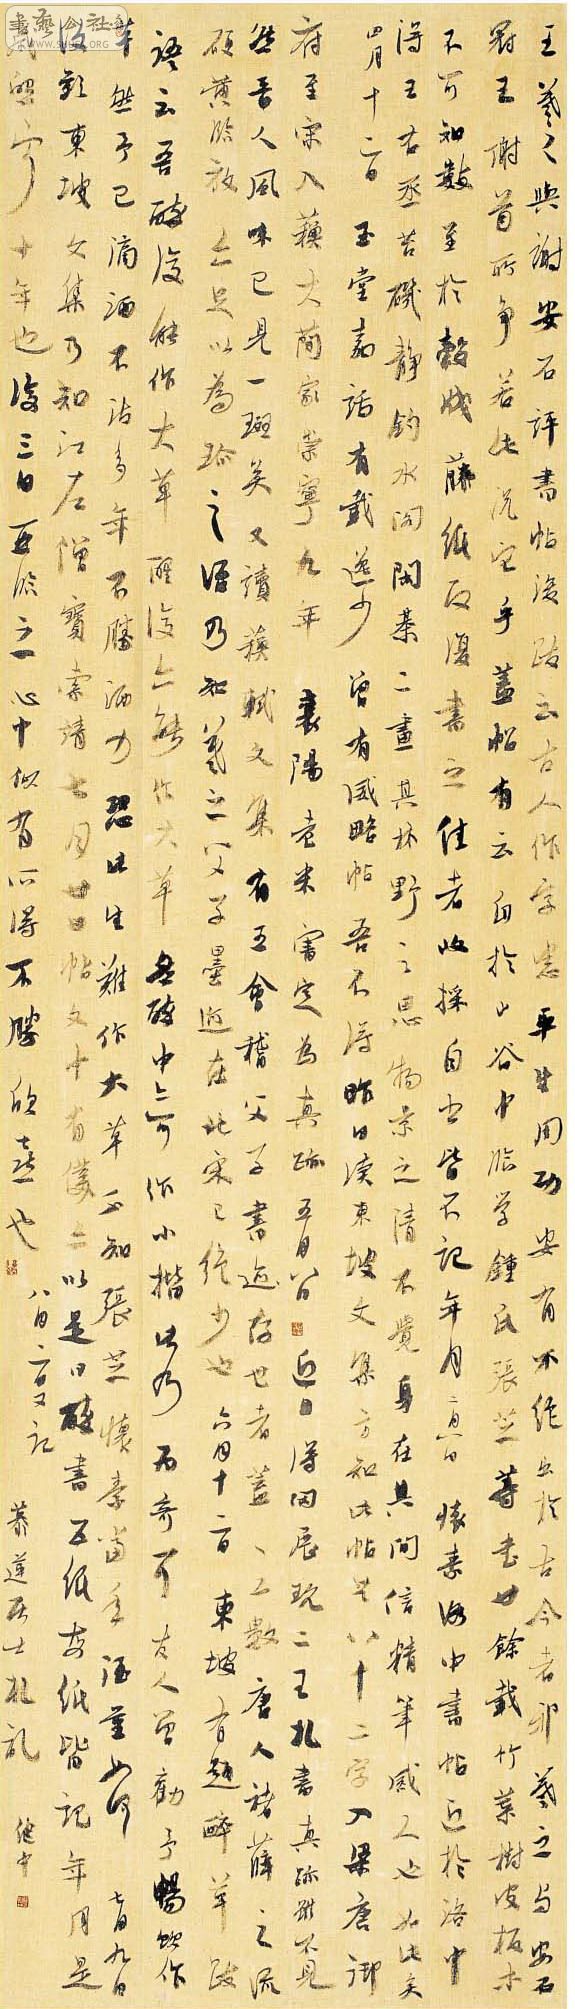 王羲之與謝安石評書帖後跋云古人作字患平生用功安有不絕出於古今者邪羲之與安石
冠王謝首所爭若此況它乎蓋帖有云自於山谷中臨學鍾氏張芝等書廿餘載竹葉樹皮板木
不可知數至於穀皮藤紙反復書之佳者收採自書皆不記年月 懷素 中書帖近於洛中
得王右丞苔磯靜釣水閣閑棊二畫其林野之思物景之清不覺身在其間信精筆感人也如此矣
四月十二日 玉堂嘉話有載逸少 曾有威略帖吾不得昨日讀東坡文集方知此帖是八十二字入梁唐御
府至宋入蘇大簡家崇寧九年 襄陽老米審定為真跡五月八日 近日得因展玩二王札書真跡雖不見
然晉人風味已見一斑矣又讀蘇軾文集有王會稽父子書迹存世者蓋一二數唐人褚薛之流
硬黃臨放亦足以為珍之語乃知羲之父子墨迹在北宋已絕少也 六月十二日 東坡有題醉草跋
語云吾醉後能作大草醒後亦能作大草然醉中亦可作小楷此乃為奇可友人曾勸予暢飲作
草然予已滴酒不沾多年不勝酒力恐此生難作大草不知張芝懷素當年酒量如何 七月九日
後觀東坡文集乃知江左僧寶索靖七月廿日帖文中有僕亦以是日醉書五紙與紙皆記年月是
歲熙寧十年也後三日再臨之一心中似有所得不勝欣喜也 八月二日又記 慕蓮居士札記 繼中
書藝公社